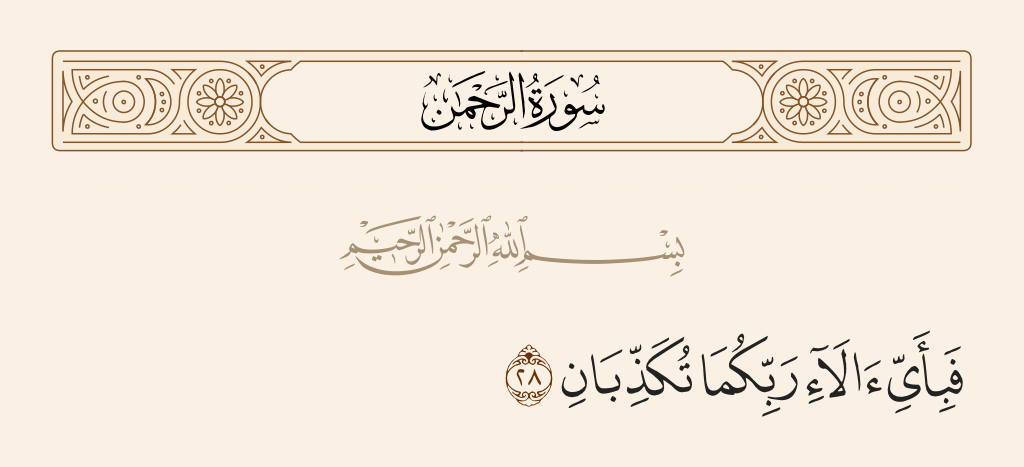 سُورَةُ الرَّحْمَٰن
بِسْمِ ٱللَّهِ ٱلرَّحْمَٰنِ ٱلرَّحِيمِ
فَبِأَيِّ ءَالَآءِ رَبِّكُمَا تُكَذِّبَانِ ٢٨